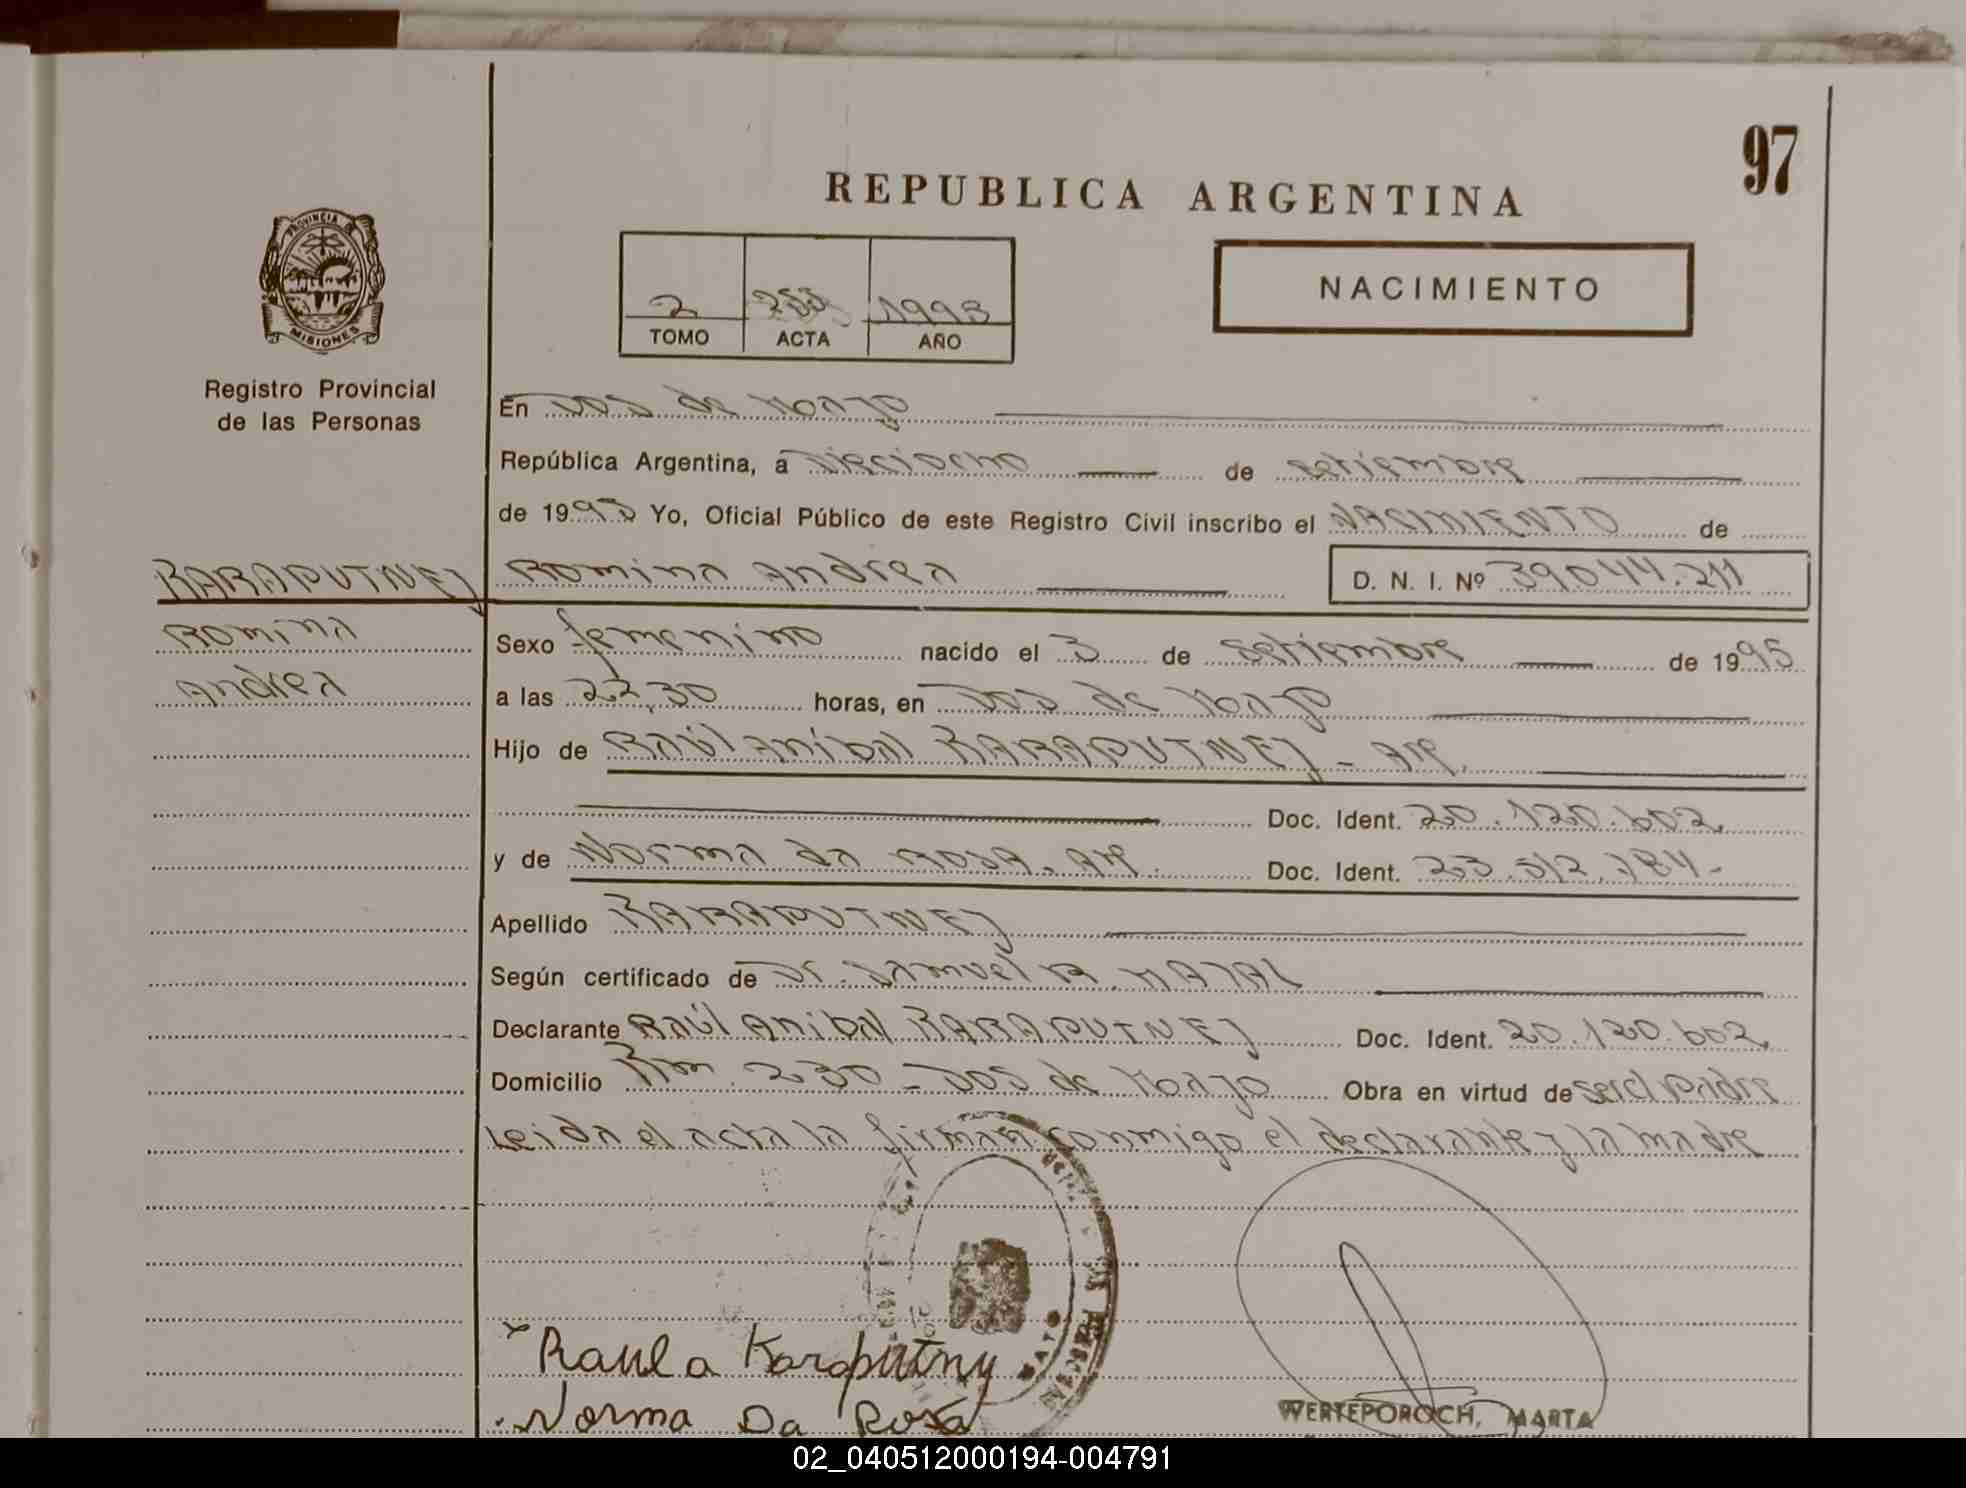 97
REPUBLICA ARGENTINA
PROVINCIA DE
MISIONES
Registro Provincial
de las Personas
2 1995
TOMO ACTA AÑO
NACIMIENTO
En Dos de Mayo
República Argentina, a dieciocho de setiembre
de 1995 Yo, Oficial Público de este Registro Civil inscribo el NACIMIENTO de
KARAPUTNEJ Romina Andrea D. N. I. Nº 39044.211
Romina
Andrea
Sexo femenino nacido el 3 de setiembre de 1995
a las 22,30 horas, en Dos de Mayo
Hijo de Raúl Anibal KARAPUTNEJ - Ar.
Doc. Ident. 20.120.602.
y de Norma da Rosa. Ar. Doc. Ident. 23.512.784-
Apellido KARAPUTNEJ
Según certificado de Dr. Samuel R.
Declarante Raúl Anibal KARAPUTNEJ Doc. Ident. 20.120.602.
Domicilio Km. 230 - Dos de Mayo Obra en virtud de ser el padre
Leida el acta la firman conmigo el declarante y la madre
Raul a Karaputny
Norma Da Rosa
WERTEPOROCH, MARTA
02_040512000194-004791